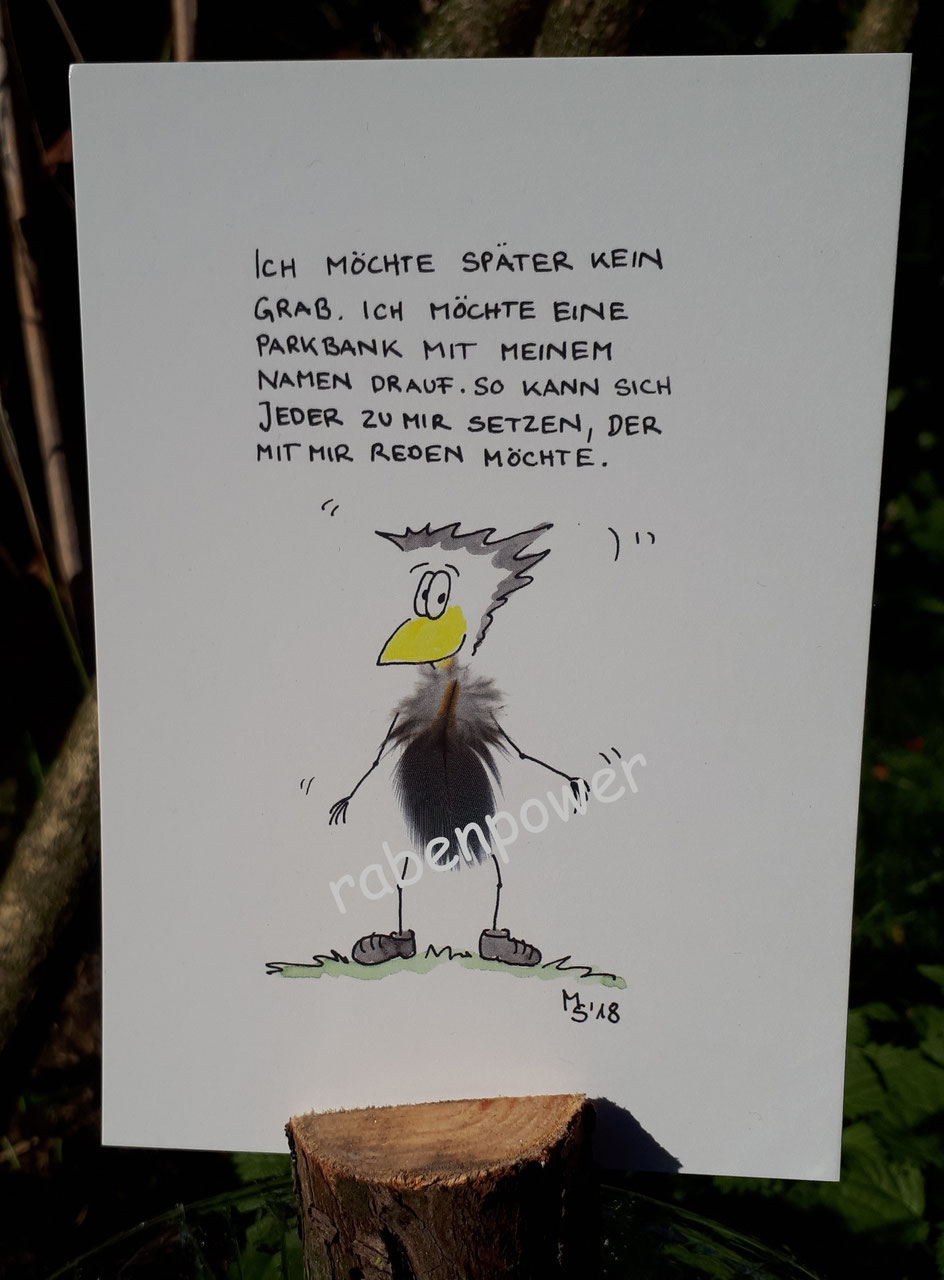 ICH MÖCHTE SPÄTER KEIN
GRAB. ICH MÖCHTE EINE
PARKBANK MIT MEINEM
NAMEN DRAUF. SO KANN SICH
JEDER ZU MIR SETZEN, DER
MIT MIR REDEN MÖCHTE.
rabenpower
MS'18